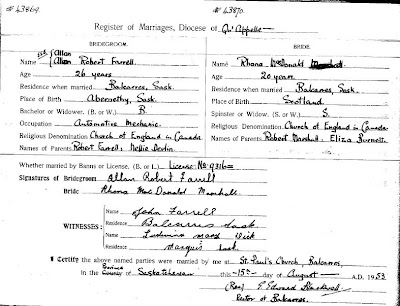 # 43869. # 43870.
Register of Marriages, Diocese of Qu'Appelle
BRIDEGROOM. BRIDE.
Allan
Name Allan Robert Farrell Name Rhona McDonald Marshall
Age 26 years Age 20 years
Residence when married Balcarres, Sask. Residence when married Balcarres, Sask.
Place of Birth Abernethy, Sask. Place of Birth Scotland.
Bachelor or Widower (B. or W.) B. Spinster or Widow (S. or W.) S.
Occupation Automotive Mechanic. Religious Denomination Church of England in Canada
Religious Denomination Church of England in Canada Names of Parents Robert Marshall. Eliza Burnett.
Names of Parents Robert Farrell. Nellie
Whether married by Banns or License, (B. or L.) License No. 9316
Signatures of Bridegroom Allan Robert Farrell
Bride Rhona MacDonald Marshall
Name John Farrell
Residence Balcarres Sask.
WITNESSES:
Name
Residence Sask.
I Certify the above named parties were married by me at St. Paul's Church, Balcarres,
in the Province of Saskatchewan this 15th day of August A.D. 1953
(Rev.) E. Edward
Rector of Balcarres.